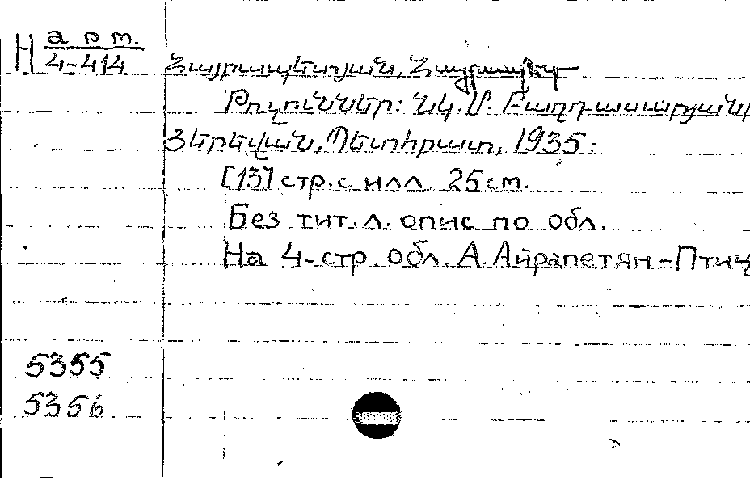 Н арт.
4-414
Հայրապետյան, Հայրապետ
Թռչուններ: Նկ. Մ. Բաղդասարյանի
Յերեվան, Պետհրատ, 1935.
[13] стр. с илл. 25 см.
Без тит. л. опис по обл.
На 4-стр. обл. А. Айрапетян-Птиц
5355
5356